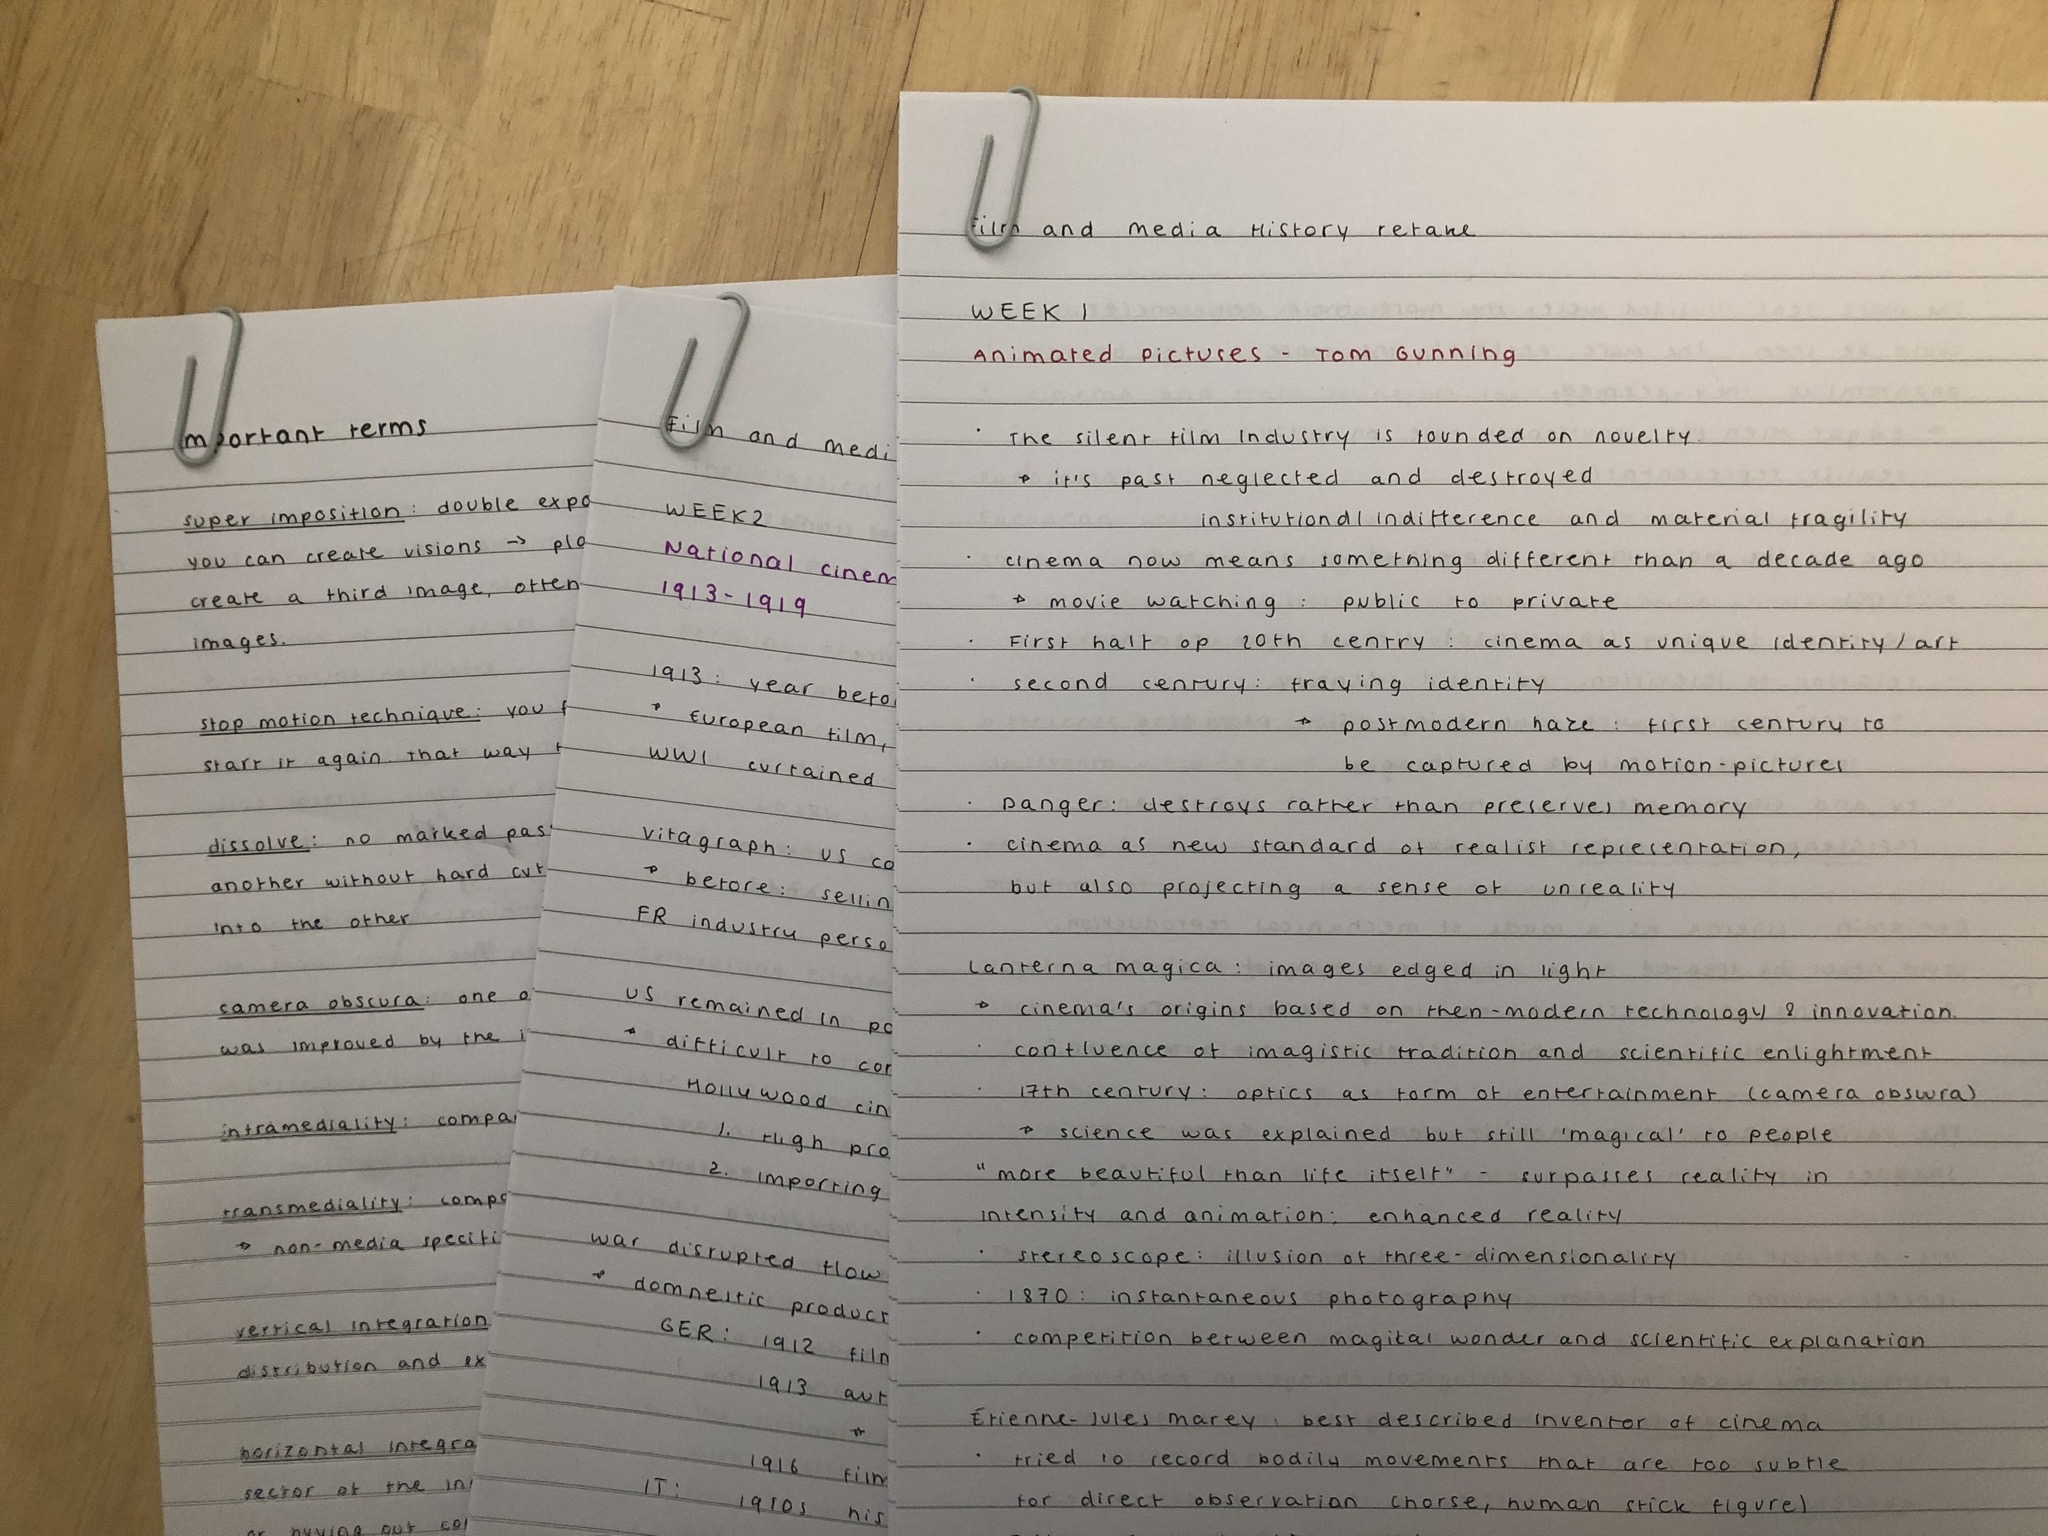 Important terms
super imposition: double expo
you can create visions → pla
create a third image, often
images.
stop motion technique: you
start it again. that way t
dissolve: no marked pas
another without hard cut
into the other
camera obscura: one o
was improved by the i
intramediality: compa
transmediality: compa
→ non-media specifi
vertical integration
distribution and ex
horizontal integra
sector of the in
or buying out co
film and medi
WEEK 2
National cinem
1913-1919
1913: year befo
→ European film,
WW1 curtained
Vitagraph: US co
→ before: sellin
FR industry perso
US remained in po
→ difficult to cor
Hollywood cin
1. High pro
2. importing
war disrupted flow
→ domnestic product
GER: 1912 film
1913 aut
→
1916 film
IT: 1910s his
film and media History retake
WEEK 1
Animated pictures - Tom Gunning
· The silent film industry is founded on novelty.
→ it's past neglected and destroyed
institutional indifference and material fragility
· cinema now means something different than a decade ago
→ movie watching: public to private
· First half op 20th centry: cinema as unique identity/art
· second century: fraying identity
→ postmodern haze: first century to
be captured by motion-pictures
· Danger: destroys rather than preserves memory
· cinema as new standard of realist representation,
but also projecting a sense of unreality
Lanterna magica: images edged in light
→ cinema's origins based on then-modern technology & innovation.
· confluence of imagistic tradition and scientific enlightment
· 17th century: optics as form of entertainment (camera obscura)
→ science was explained but still 'magical' to people
"more beautiful than life itself" - surpasses reality in
intensity and animation: enhanced reality
· stereoscope: illusion of three-dimensionality
· 1870: instantaneous photography
· competition between magital wonder and scientific explanation
Étienne-Jules Marey: best described inventor of cinema
· tried to record bodily movements that are too subtle
for direct observation (horse, human stick figure)